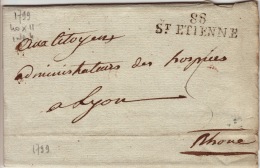 1799
40 x 11
88
ST ETIENNE
Aux Citoyens
administrateurs des hospices
a Lyon
Rhone
1799